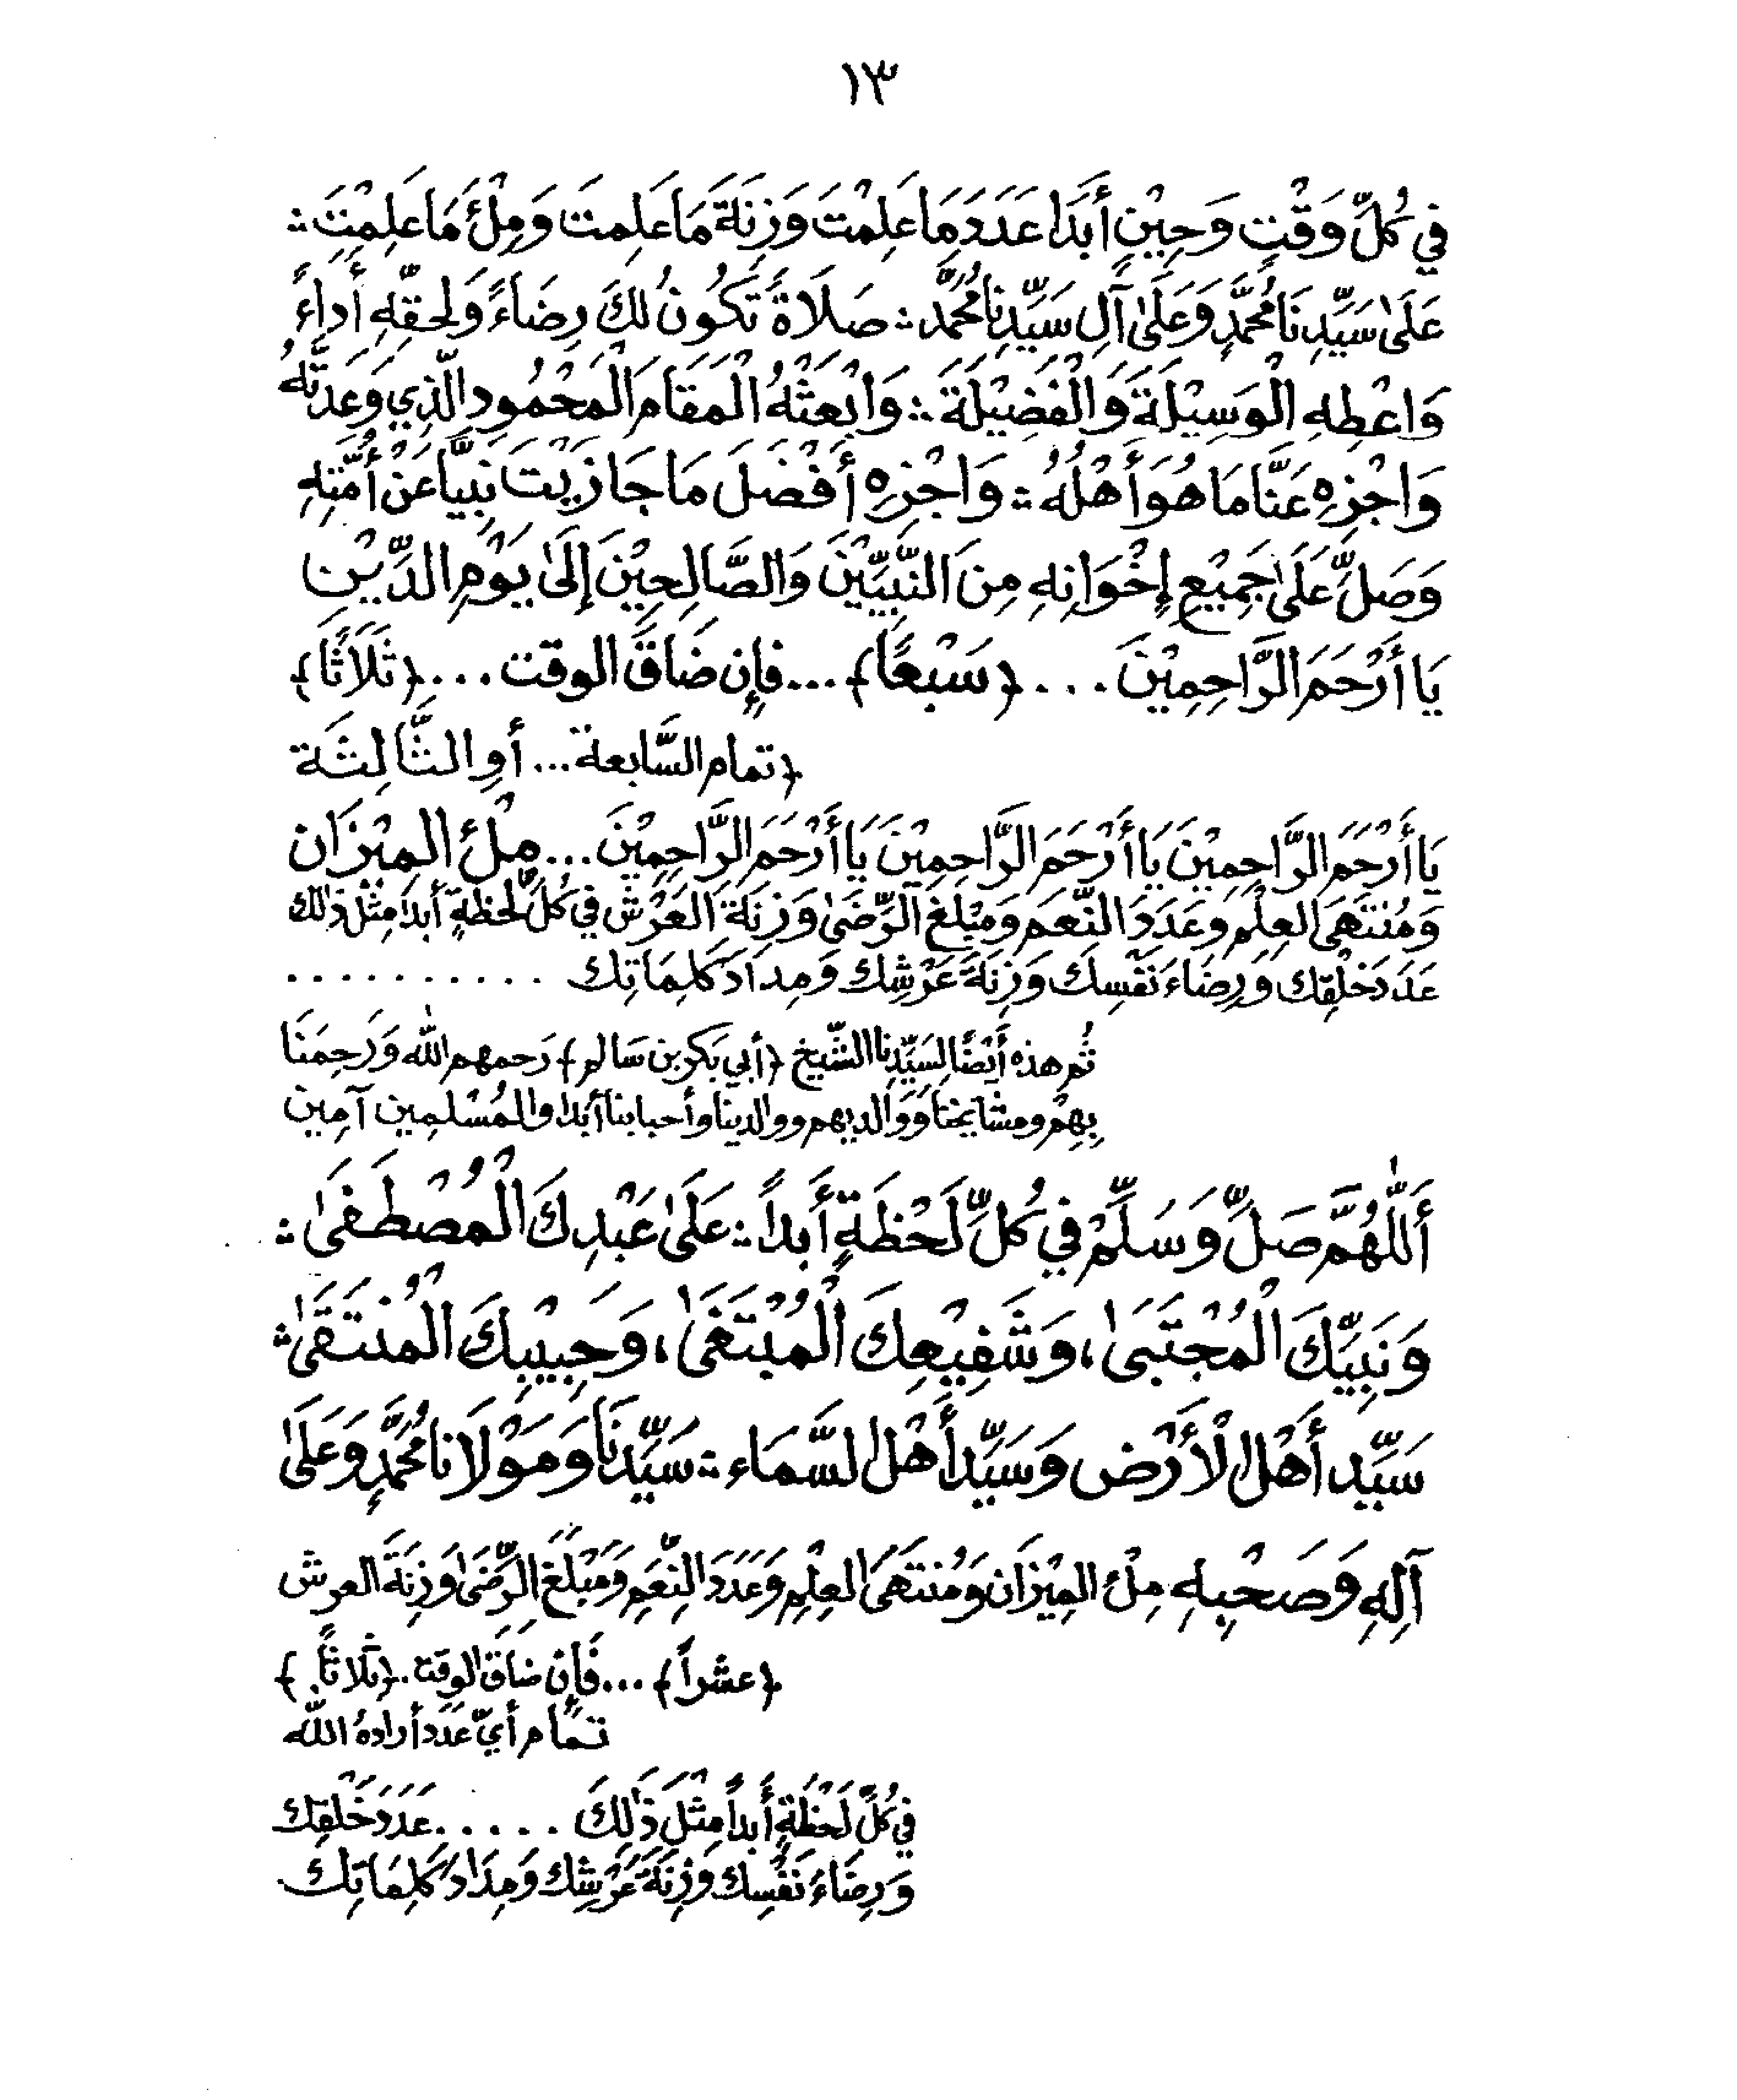 ١٣
في كُلِّ وَقْتٍ وَحِيْنٍ أَبَدًا عَدَدَ مَا عَلِمْتَ وَزِنَةَ مَا عَلِمتَ وَمِلْئَ مَا عَلِمْتَ ؞
عَلَىٰ سَيِّدِنَا مُحَمَّدٍ وَعَلَىٰ آلِ سَيِّدِنَا مُحَمَّد ؞ صَلَاةً تَكُونُ لَكَ رِضَاءً وَلِحقِّهِ أَدَاءً
وَاعْطِهِ الْوَسِيْلَةَ وَالْفَضِيْلَةَ ؞ وَابْعَثْهُ الْمَقَامَ الْمَحْمُودِ الَّذِي وَعَدتَّهُ
وَاجْزِهِ عَنَّا مَا هُوَ أَهْلُهُ ؞ وَاجْزِهِ أَفْضَلَ مَا جَازَيْتَ نَبِيًّا عَنْ أُمَّتِهِ
وَصَلِّ عَلَىٰ جَمِيْعِ إِخْوَانِهِ مِنَ النَّبِيِّيْنَ وَالصَّالِحِيْنَ إِلَىٰ يَوْمِ الدِّيْنِ
يَا أَرْحَمَ الرَّاحِمِيْنَ ... ﴿سَبْعًا﴾ ... فإِن ضَاقَ الوقت ... ﴿ثَلَاثًا﴾
﴿تمام السَّابعة ... أوِ الثَّالِثَة
يَا أَرْحَمَ الرَّاحِمِيْنَ يَا أَرْحَمَ الرَّاحِمِيْنَ يَا أَرْحَمَ الرَّاحِمِيْنَ ... مِلْئَ المِيْزَان
وَمُنتَهَى العِلْمِ وَعَدَدَ النِّعَمِ وَمَبْلَغَ الرِّضَىٰ وَزِنَةَ العَرْش في كُلِّ لَحظَةٍ أَبَدًا مِثْلَ ذٰلك
عَدَدَ خَلْقِك وَرِضَاءَ نَفْسِك وَزِنَةَ عَرْشِك وَمِدَادَ كَلِمَاتِك . . . . . . . . . . .
ثُم هذه أَيْضًا لِسَيِّدِنا الشَّيخ ﴿أبي بَكر بن سَالم﴾ رَحمهم اللّٰه وَرَحِمَنَا
بِهِمْ ومشايخنا وَوَالديهم ووالدينا وأحبابنا أبدا والمُسْلمِين آمِين
أَللّٰهُمَّ صَلِّ وَسَلِّمْ فِي كُلِّ لَحْظَةٍ أَبداً ؞ عَلَىٰ عَبْدِكَ الْمُصْطَفَىٰ ؞
وَنَبِيِّكَ الْمُجْتَبَىٰ ، وَشَفِيْعِكَ الْمُبْتَغَىٰ ، وَحَبِيبِكَ الْمُنتَقَىٰ ؞
سَيِّدِ أَهْلِ الْأَرْض وَسَيِّدِ أَهْلِ السَّمَاء ؞ سَيِّدِنَا وَمَوْلَانا مُحَمَّدٍ وَعَلَىٰ
آلِهِ وَصَحْبِهِ مِلْئَ المِيْزَان وَمُنتَهَى العِلْمِ وَعَدَدَ النِّعَمِ وَمَبْلَغَ الرِّضَىٰ وَزِنَةَ العرش
﴿عشراً﴾ ... فَإِن ضَاقَ الوقت .. ﴿ثلاثاً﴾
تمَام أَيّ عَدَد أرادهُ اللّه
في كُلِّ لَحْظَةٍ أَبداً مِثْلَ ذٰلِكَ ..... عَدَدَ خَلْقِك
وَرِضَاءَ نَفْسِك وَزِنَةَ عَرْشِك وَمِدَادَ كَلِمَاتِك .